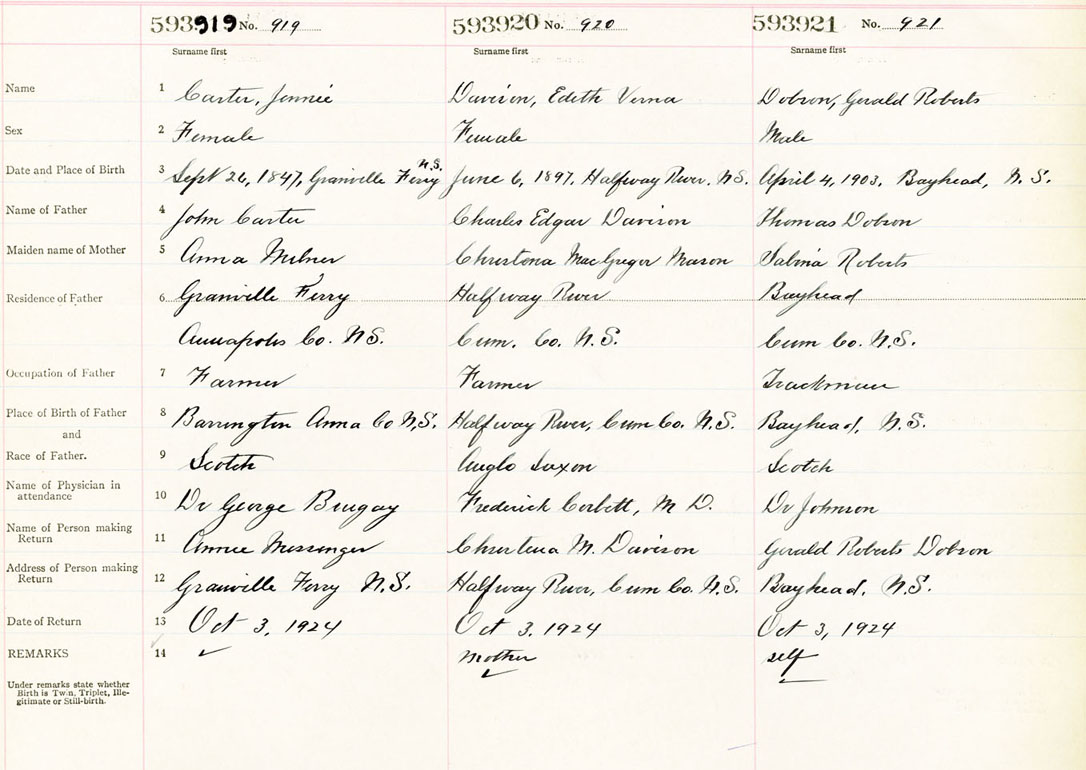 593919 No. 919 593920 No. 920 593921 No. 921
Surname first Surname first Surname first
Name 1 Carter, Jennie Davison, Edith Verna Dobson, Gerald Roberts
Sex 2 Female Female Male
Date and Place of Birth 3 Sept 26, 1847, Granville Ferry N.S. June 6, 1897. Halfway River. N.S. April 4, 1903. Bayhead, N.S.
Name of Father 4 John Carter Charles Edgar Davison Thomas Dobson
Maiden name of Mother 5 Anna Milner Christena MacGregor Mason Sabina Roberts
Residence of Father 6 Granville Ferry Halfway River Bayhead
Annapolis Co. N.S. Cum. Co. N.S. Cum Co. N.S.
Occupation of Father 7 Farmer Farmer Trackman
Place of Birth of Father 8 Barrington Anna Co N.S. Halfway River, Cum Co. N.S. Bayhead, N.S.
and
Race of Father. 9 Scotch Anglo Saxon Scotch
Name of Physician in
attendance 10 Dr George Frederick Corbett, M D. Dr Johnson
Name of Person making
Return 11 Annie Messenger Christena M. Davison Gerald Roberts Dobson
Address of Person making
Return 12 Granville Ferry N.S. Halfway River, Cum Co. N.S. Bayhead, N.S.
Date of Return 13 Oct 3, 1924 Oct 3, 1924 Oct 3, 1924
REMARKS 14 ✓ mother ✓ self ✓
Under remarks state whether
Birth is Twin, Triplet, Ille-
gitimate or Still-birth.